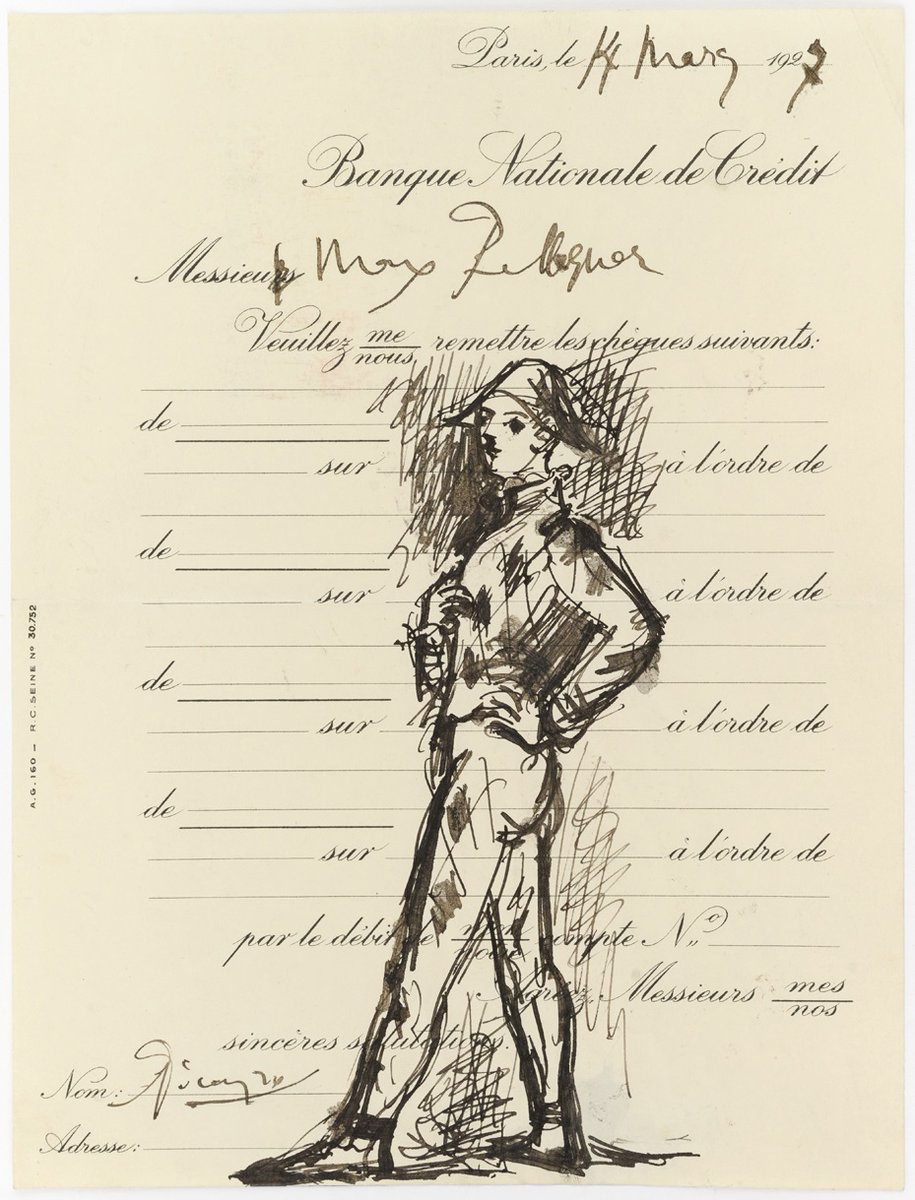 Paris, le 14 Mars 1927
Banque Nationale de Crédit
Messieurs Max Pellequer
Veuillez me remettre les chèques suivants:
nous
de
sur à l'ordre de
de
sur à l'ordre de
de
sur à l'ordre de
de
sur à l'ordre de
par le débit de compte Nº
Agréez, Messieurs mes
nos
sincères salutations.
Nom: Picasso
Adresse:
A.G. 160 — R.C. SEINE Nº 30.752